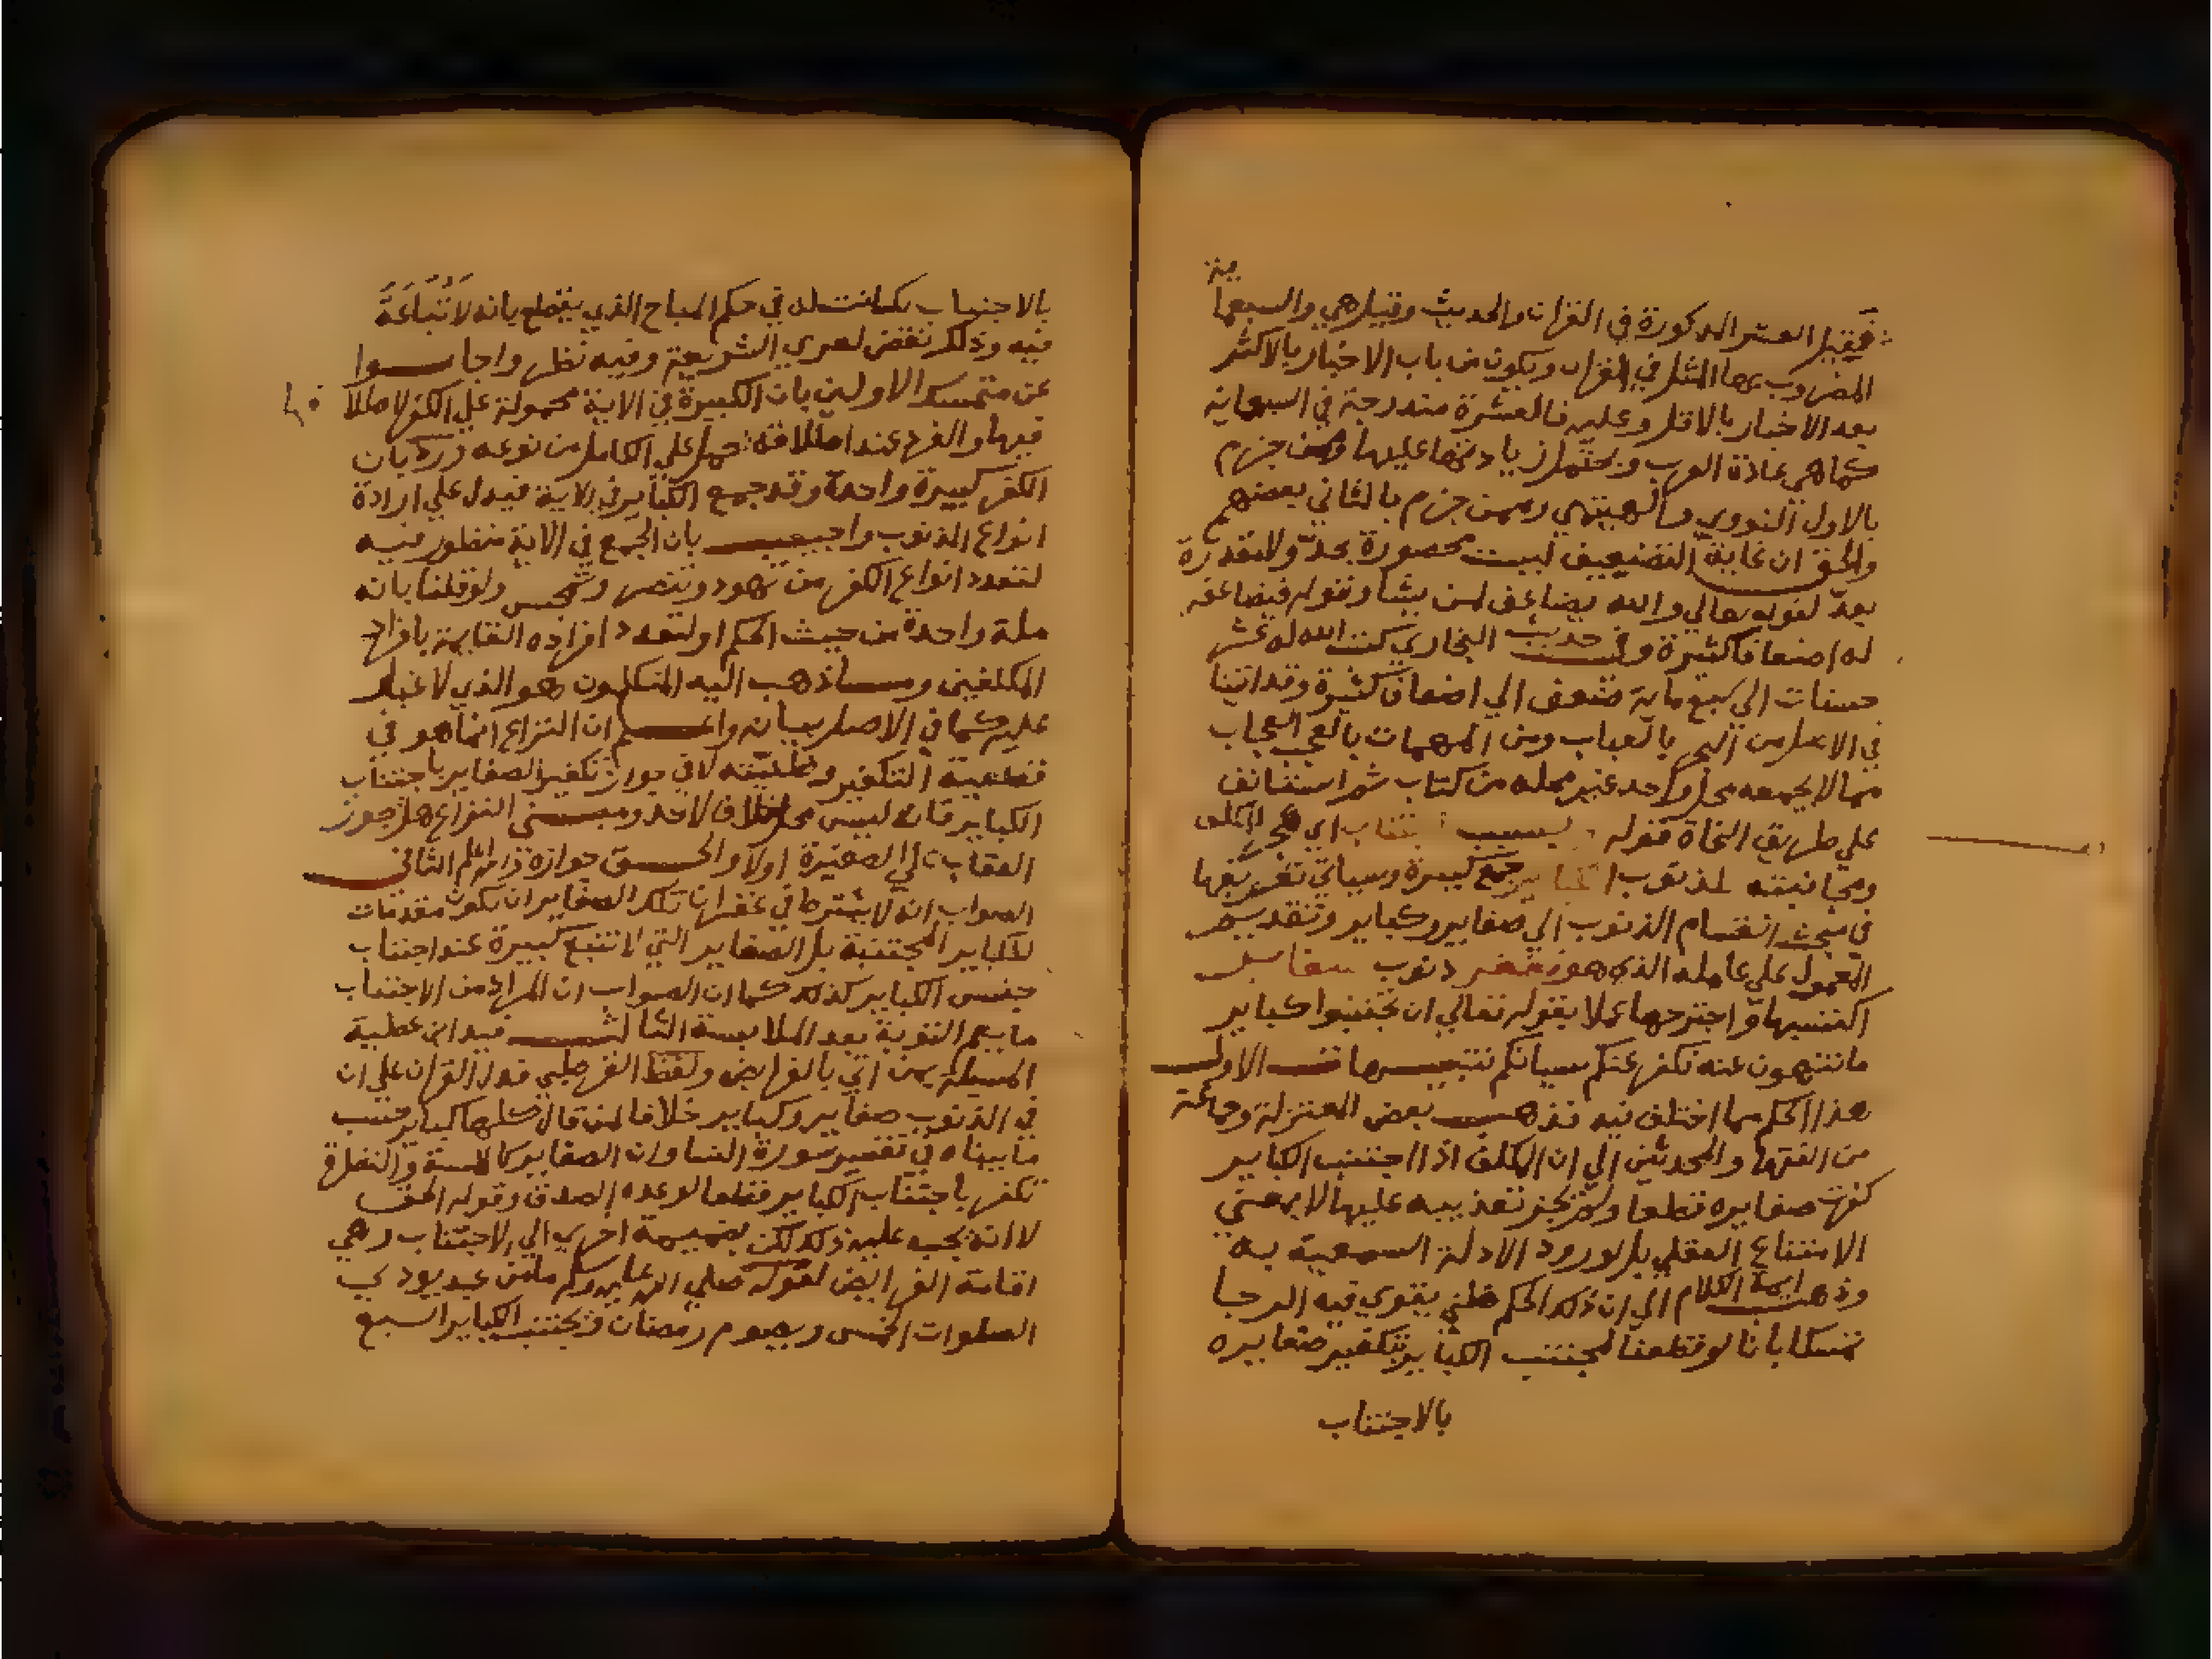 فقيل العشر المذكورة في القران والحديث وقيل هي والسبعما
ية
المضروب بها المثل في القران ويكون من باب الاخبار بالاكثر
بعد الاخبار بالاقل وعليه فالعشرة مندرجة في السبعماية
كما هي عادة العرب ويحتمل زيادتها عليها وممن جزم
بالاول النووي والهيتمي وممن جزم بالثاني بعضهم
والحق ان غاية التضعيف ليست محصورة بحد ولا مقدرة
بعد لقوله تعالي والله يضاعف لمن يشا وقوله فيضاعفه
له اضعافا كثيرة وفي حديث البخاري كتب الله له عشر
حسنات الي سبع ماية ضعف الي اضعاف كثيرة وقد اتينا
في الاصل من البحر بالعباب ومن المهمات بالعجب العجاب
مما لا يجمعه محل واحد غير محله من كتاب ثم استانف
علي طريق النحاة فقوله باجتناب اي المكلف
ومجانبته لذنوب كبائر جمع كبيرة وسياتي تعريفها
في مبحث انقسام الذنوب الي صغاير وكباير وتقديم
المعمول علي عامله الذي هو تغفر ذنوب صغاير
اكتسبها واجترحها عملا بقوله تعالي ان تجتنبوا كباير
ما تنهون عنه نكفر عنكم سياتكم تنبيهات الاول
هذا الحكم مما اختلف فيه فذهب بعض المعتزلة وجماعة
من الفقها والمحدثين الي ان المكلف اذا اجتنب الكباير
كفرت صغايره قطعا ولم يجز تعذيبه عليها لا بمعني
الامتناع العقلي بل لورود الادلة السمعية به
وذهب ايمة الكلام الي ان ذلك الحكم ظني يقوي فيه الرجا
تمسكا بانا لو قطعنا لمجتنب الكباير بتكفير صغايره
بالاجتناب
بالاجتناب لكانت له في حكم المباح الذي يقطع بانه لا تباعة
فيه وذلك نقض لعري الشريعة وفيه نظر واجابوا
عن متمسك الاولين بان الكبيرة في الاية محمولة علي الكفر لاطلا
قها
فيها والفرد عند اطلاقه حمل علي الكامل من نوعه ورد بان
الكفر كبيرة واحدة وقد جمع الكباير في الاية فيدل علي ارادة
انواع الذنوب واجيب بان الجمع في الاية منظور فيه
لتعدد انواع الكفر من تهود وتنصر وتمجس ولو قلنا بانه
ملة واحدة من حيث الحكم او لتعدد افراده القايمة بافراد
المكلفين وما ذهب اليه المتكلمون هو الذي لا غبار
عليه كما في الاصل بيانه واعلم ان النزاع انما هو في
قطعية التكفير وظنيته لا في جواز تكفير الصغاير باجتناب
الكباير فانه ليس محل خلاف لاحد ومبني النزاع هل يجوز
العقاب علي الصغيرة اولا والحق جوازه الثاني
الصواب انه لا يشترط في غفران تلك الصغاير ان تكون مقدمات
للكباير المجتنبة بل الصغاير التي لا تتبع كبيرة عند اجتناب
جنس الكباير كذلك كما ان الصواب ان المراد من الاجتناب
ما يعم التوبة بعد الملابسة الثالث قيد ابن عطية
المسيلة بمن اتي بالفرايض ولفظ القرطبي فدل القران علي ان
في الذنوب صغاير وكباير خلافا لمن قال كلها كباير حسب
ما بيناه في تفسير سورة النسا وان الصغاير كاللمسة والنظرة
تكفر باجتناب الكباير قطعا لوعده الصدق وقوله الحق
لا انه يجب عليه ذلك لكن بضميمة اخري الي الاجتناب وهي
اقامة الفرايض لقوله صلي الله عليه وسلم ما من عبد يودي
الصلوات الخمس ويصوم رمضان ويجتنب الكباير السبع